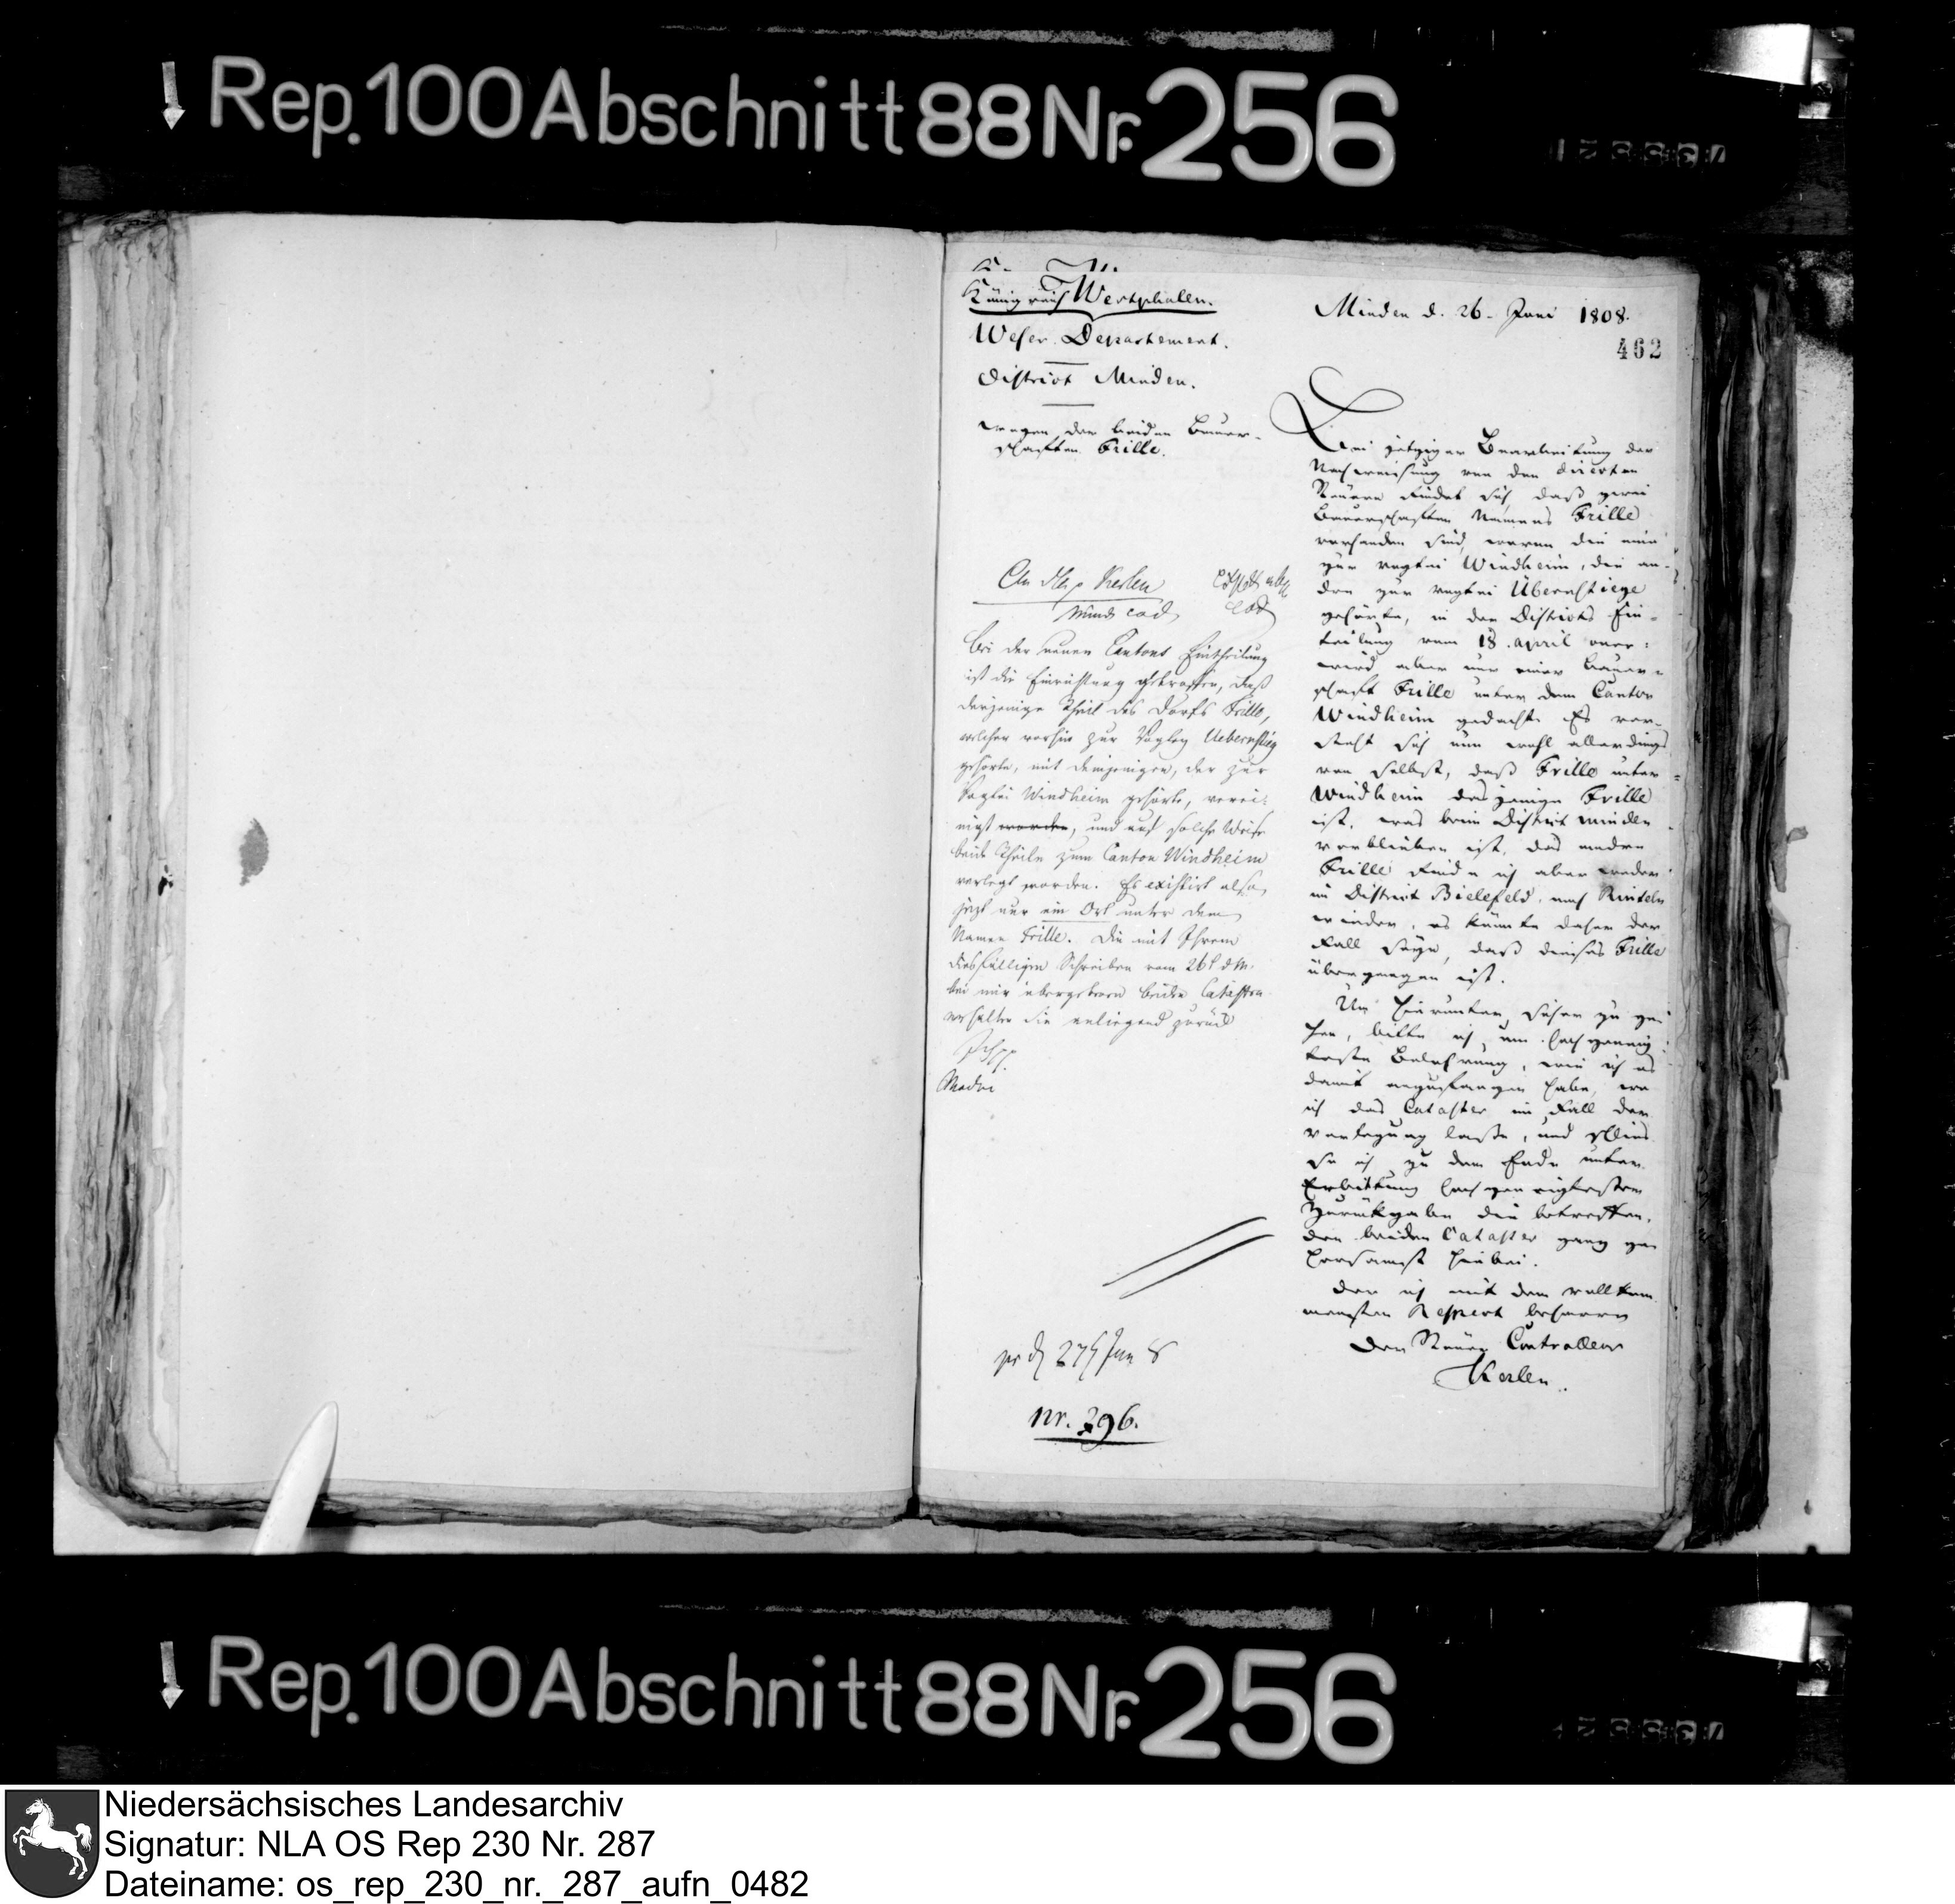 Rep. 100 Abschnitt 88 Nr. 256
Königreich Westphalen.
Weser Departement.
District Minden.
wegen der beiden Bauer-
schaften Frille.
Minden d. 26. Juni 1808.
462
An H. p Kerlen
Minden eod
Bei der neuen Cantons Eintheilung
ist die Einrichtung getroffen, daß
derjenige Theil des Dorfs Frille,
welcher vorhin zur Vogtey Uebernstieg
gehörte, mit demjenigen, der zur
Vogtei Windheim gehörte, verei-
nigt worden, und auf solche Weise
beide Theile zum Canton Windheim
verlegt worden. Es existirt also
jezt nur ein Ort unter dem
Namen Frille. Die mit Ihrem
diesfälligen Schreiben vom 26t d M.
bei mir übergebenen beiden Cataster
erhalten Sie anliegend zurück
pr d 27t Jun 8
nr. 296.
Bei jetziger Bearbeitung der
Nachweisung von den directen
Steuern findet sich, daß zwei
Bauerschaften Namens Frille
vorhanden sind, wovon die eine
zur Vogtei Windheim, die an-
dere zur Vogtei Übernstiege
gehörte, in der Districts Ein-
teilung vom 18. April
wird aber nur einer Bauer-
schaft Frille unter dem Canton
Windheim gedacht. Es ver-
steht sich nun wohl allerdings
von selbst, daß Frille unter
Windheim dasjenige Frille
ist, was beim District Minden
verblieben ist, das andere
Frille finde ich aber weder
im District Bielefeld, noch Rinteln
wieder, es könnte daher der
Fall seyn, daß dieses Frille
übergangen ist.
Um hierunter sicher zu ge-
hen, bitte ich um hochgeneig-
teste Belehrung, wie ich es
damit anzufangen habe, wo
ich das Cataster im Fall der
Verlegung lasse, und schlies-
se ich zu dem Ende unter
Erbittung hochgeneigtesten
Zurückgabe die betreffen-
den beiden Cataster ganz ge-
horsamst hiebei.
Der ich mit dem vollkom-
mensten Respect beharre
Der Steuer Controlleur
Kerlen.
Rep. 100 Abschnitt 88 Nr. 256
Niedersächsisches Landesarchiv
Signatur: NLA OS Rep 230 Nr. 287
Dateiname: os_rep_230_nr._287_aufn_0482